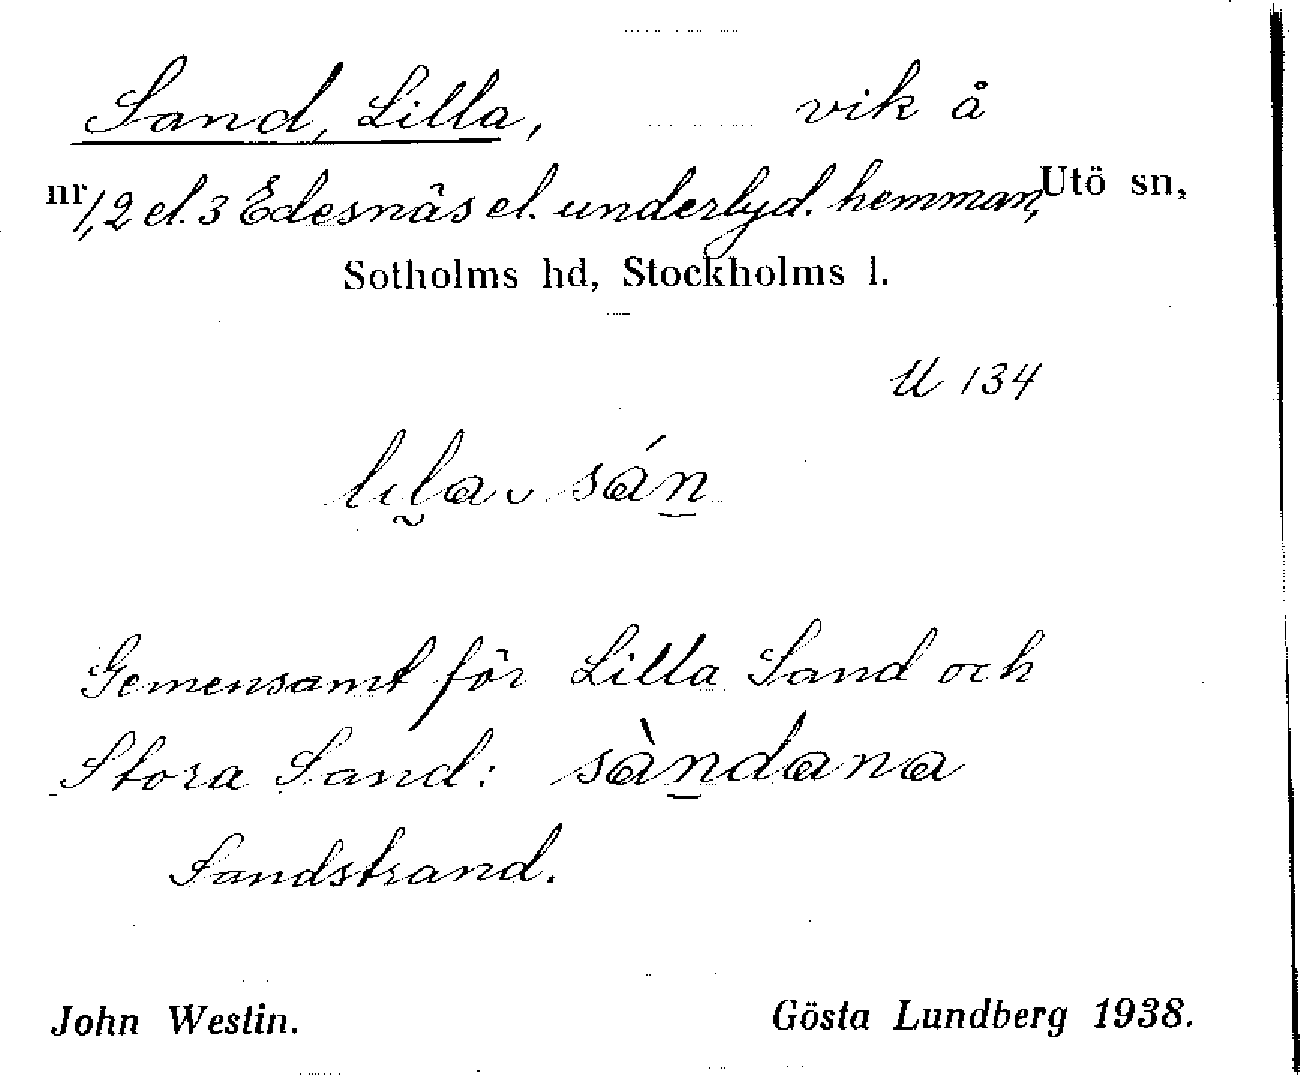 Sand, Lilla, vik å
nr 1, 2 el. 3 Edesnäs el. underlyd. hemman, Utö sn,
Sotholms hd, Stockholms l.
U 134
lıla ᴗ sán
Gemensamt för Lilla Sand och
Stora Sand: sàndana
Sandstrand.
John Westin. Gösta Lundberg 1938.